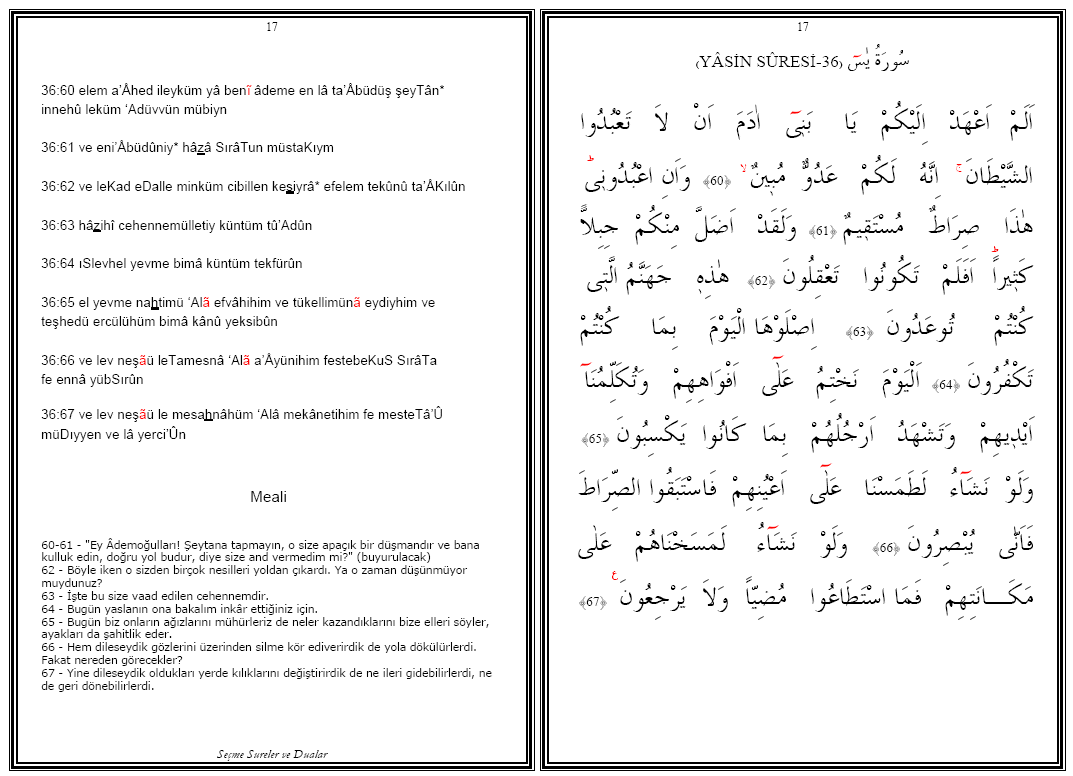 17
36:60 elem a’Åhed ileyküm yâ benĩ âdeme en lâ ta’Åbüdüş şeyTân*
innehû leküm ‘Adüvvün mübiyn
36:61 ve eni’Âbüdûniy* hâzâ SırâTun müstaKıym
36:62 ve leKad eDalle minküm cibillen kesiyrâ* efelem tekûnû ta’ÅKılûn
36:63 hâzihî cehennemülletiy küntüm tû’Adûn
36:64 ıSlevhel yevme bimâ küntüm tekfürûn
36:65 el yevme nahtimü ‘Alã efvâhihim ve tükellimünã eydiyhim ve
teşhedü ercülühüm bimâ kânû yeksibûn
36:66 ve lev neşãü leTamesnâ ‘Alã a’Åyünihim festebeKuS SırâTa
fe ennâ yübSırûn
36:67 ve lev neşãü le mesahnâhüm ‘Alâ mekânetihim fe mesteTâ’Û
müDıyyen ve lâ yerci’Ûn
Meali
60-61 - "Ey Âdemoğulları! Şeytana tapmayın, o size apaçık bir düşmandır ve bana
kulluk edin, doğru yol budur, diye size and vermedim mi?" (buyurulacak)
62 - Böyle iken o sizden birçok nesilleri yoldan çıkardı. Ya o zaman düşünmüyor
muydunuz?
63 - İşte bu size vaad edilen cehennemdir.
64 - Bugün yaslanın ona bakalım inkâr ettiğiniz için.
65 - Bugün biz onların ağızlarını mühürleriz de neler kazandıklarını bize elleri söyler,
ayakları da şahitlik eder.
66 - Hem dileseydik gözlerini üzerinden silme kör ediverirdik de yola dökülürlerdi.
Fakat nereden görecekler?
67 - Yine dileseydik oldukları yerde kılıklarını değiştirirdik de ne ileri gidebilirlerdi, ne
de geri dönebilirlerdi.
Seçme Sureler ve Dualar
17
سُورَةُ يٰسٓ (YÂSİN SÛRESİ-36)
اَلَمْ اَعْهَدْ اِلَيْكُمْ يَا بَنِىٓ اٰدَمَ اَنْ لَا تَعْبُدُوا
الشَّيْطَانَ ۚ اِنَّهُ لَكُمْ عَدُوٌّ مُبِينٌ ۙ ﴿60﴾ وَاَنِ اعْبُدُونِىۜ
هٰذَا صِرَاطٌ مُسْتَقِيمٌ ﴿61﴾ وَلَقَدْ اَضَلَّ مِنْكُمْ جِبِلاًّ
كَثِيراًۜ اَفَلَمْ تَكُونُوا تَعْقِلُونَ ﴿62﴾ هٰذِهِ جَهَنَّمُ الَّتِى
كُنْتُمْ تُوعَدُونَ ﴿63﴾ اِصْلَوْهَا الْيَوْمَ بِمَا كُنْتُمْ
تَكْفُرُونَ ﴿64﴾ اَلْيَوْمَ نَخْتِمُ عَلٰٓى اَفْوَاهِهِمْ وَتُكَلِّمُنَٓا
اَيْدِيهِمْ وَتَشْهَدُ اَرْجُلُهُمْ بِمَا كَانُوا يَكْسِبُونَ ﴿65﴾
وَلَوْ نَشَٓاءُ لَطَمَسْنَا عَلٰٓى اَعْيُنِهِمْ فَاسْتَبَقُوا الصِّرَاطَ
فَاَنّٰى يُبْصِرُونَ ﴿66﴾ وَلَوْ نَشَٓاءُ لَمَسَخْنَاهُمْ عَلٰى
مَكَـانَتِهِمْ فَمَا اسْتَطَاعُوا مُضِيّاً وَلَا يَرْجِعُونَ ࣖ ﴿67﴾